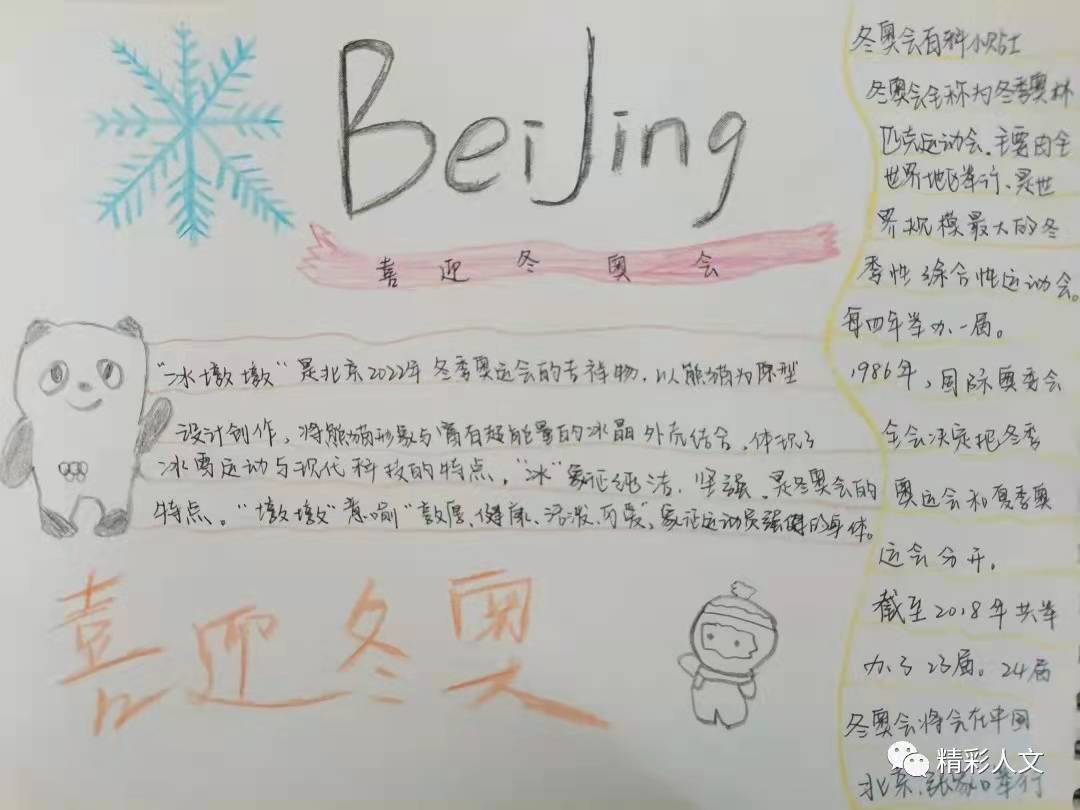 BeiJing
喜迎冬奥会
"冰墩墩"是北京2022年冬季奥运会的吉祥物，以熊猫为原型
设计创作，将熊猫形象与富有超能量的冰晶外壳结合，体现了
冰雪运动与现代科技的特点。"冰"象征纯洁、坚强，是冬奥会的
特点。"墩墩"意喻"敦厚、健康、活泼、可爱"，象征运动员强健的身体。
喜迎冬奥
冬奥会百科小贴士
冬奥会全称为冬季奥林
匹克运动会，主要由全
世界地区举行、是世
界规模最大的冬
季性综合性运动会。
每四年举办一届。
1986年，国际奥委会
全会决定把冬季
奥运会和夏季奥
运会分开。
截至2018年共举
办了23届。24届
冬奥会将会在中国
北京、张家口举行
精彩人文